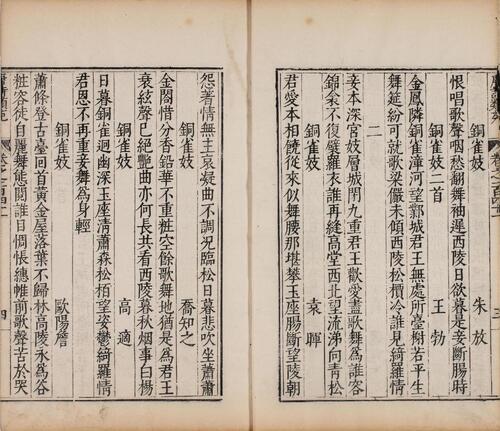 銅雀妓　朱放
恨唱歌聲咽愁翻舞袖遲西陵日欲暮是妾斷腸時
銅雀妓二首　王勃
金鳳隣銅雀漳河望鄴城君王無處所臺榭若平生
舞筵紛可就歌梁儼未傾西陵松檟冷誰見綺羅情
二
妾本深宮妓層城閉九重君王歡愛盡歌舞爲誰容
錦衾不復襞羅衣誰再縫高堂西北望流涕向青松
銅雀妓　袁暉
君愛本相饒從來似舞腰那堪攀玉座腸斷望陵朝
怨著情無主哀凝曲不調況臨松日暮悲吹坐蕭蕭
銅雀妓　喬知之
金閣惜分香鉛華不重粧空餘歌舞地猶是爲君王
哀絃聲已絕艷曲亦何長共看西陵暮秋烟事白楊
銅雀妓　高適
日暮銅雀迴幽深玉座清蕭森松柏望姿鬱綺羅情
君恩不再重妾舞爲身輕
銅雀妓　歐陽詹
蕭條登古臺回首黃金屋落葉不歸林高陵永爲谷
粧容徒自麗舞態閱誰目惆悵繐帷前歌聲苦於哭
四